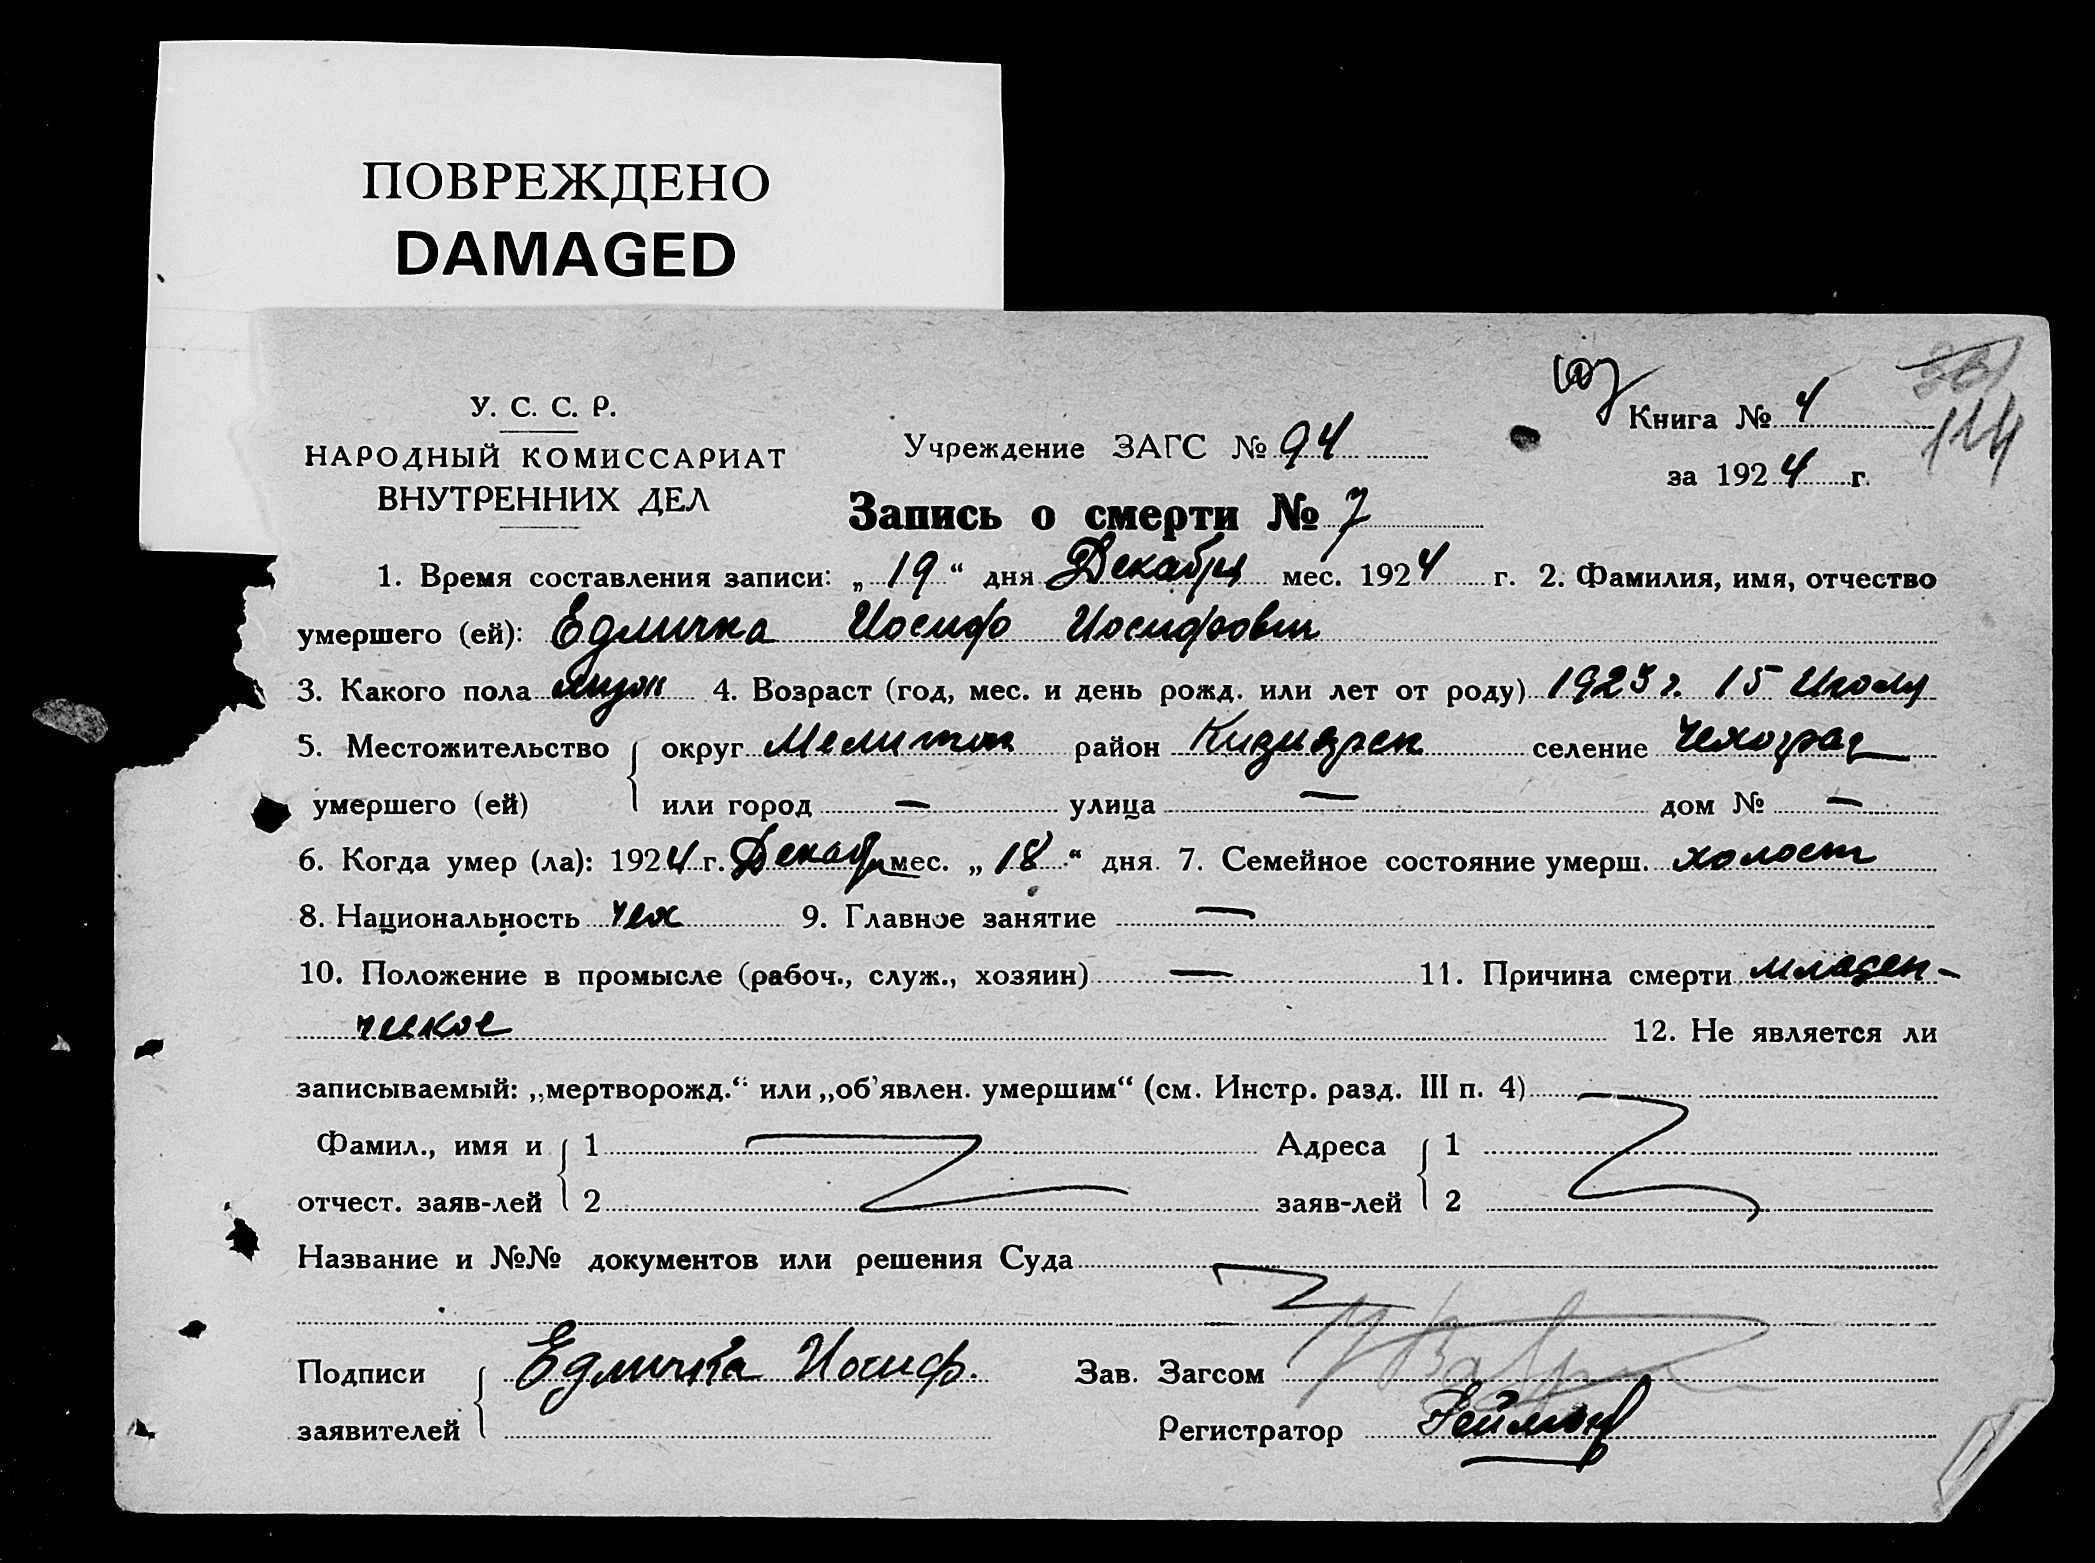 ПОВРЕЖДЕНО
DAMAGED
У. С. С. Р.
НАРОДНЫЙ КОМИССАРИАТ
ВНУТРЕННИХ ДЕЛ
Учреждение ЗАГС № 94
Книга № 4
114
за 1924 г.
Запись о смерти № 7
1. Время составления записи: „19“ дня Декабря мес. 1924 г. 2. Фамилия, имя, отчество
умершего (ей): Едличка Иосиф Иосифович
3. Какого пола муж 4. Возраст (год, мес. и день рожд. или лет от роду) 1923 г. 15 Июля
5. Местожительство округ Мелитоп район Кизиярск селение Чехоград
умершего (ей) или город — улица — дом № —
6. Когда умер (ла): 1924 г. Декабр мес. „18“ дня. 7. Семейное состояние умерш. холост
8. Национальность чех 9. Главное занятие —
10. Положение в промысле (рабоч., служ., хозяин) — 11. Причина смерти младен-
ческое 12. Не является ли
записываемый: „мертворожд.“ или „об'явлен. умершим“ (см. Инстр. разд. III п. 4)
Фамил., имя и 1 Адреса 1
отчест. заяв-лей 2 заяв-лей 2
Название и №№ документов или решения Суда
Подписи Едличка Иосиф. Зав. Загсом
заявителей Регистратор